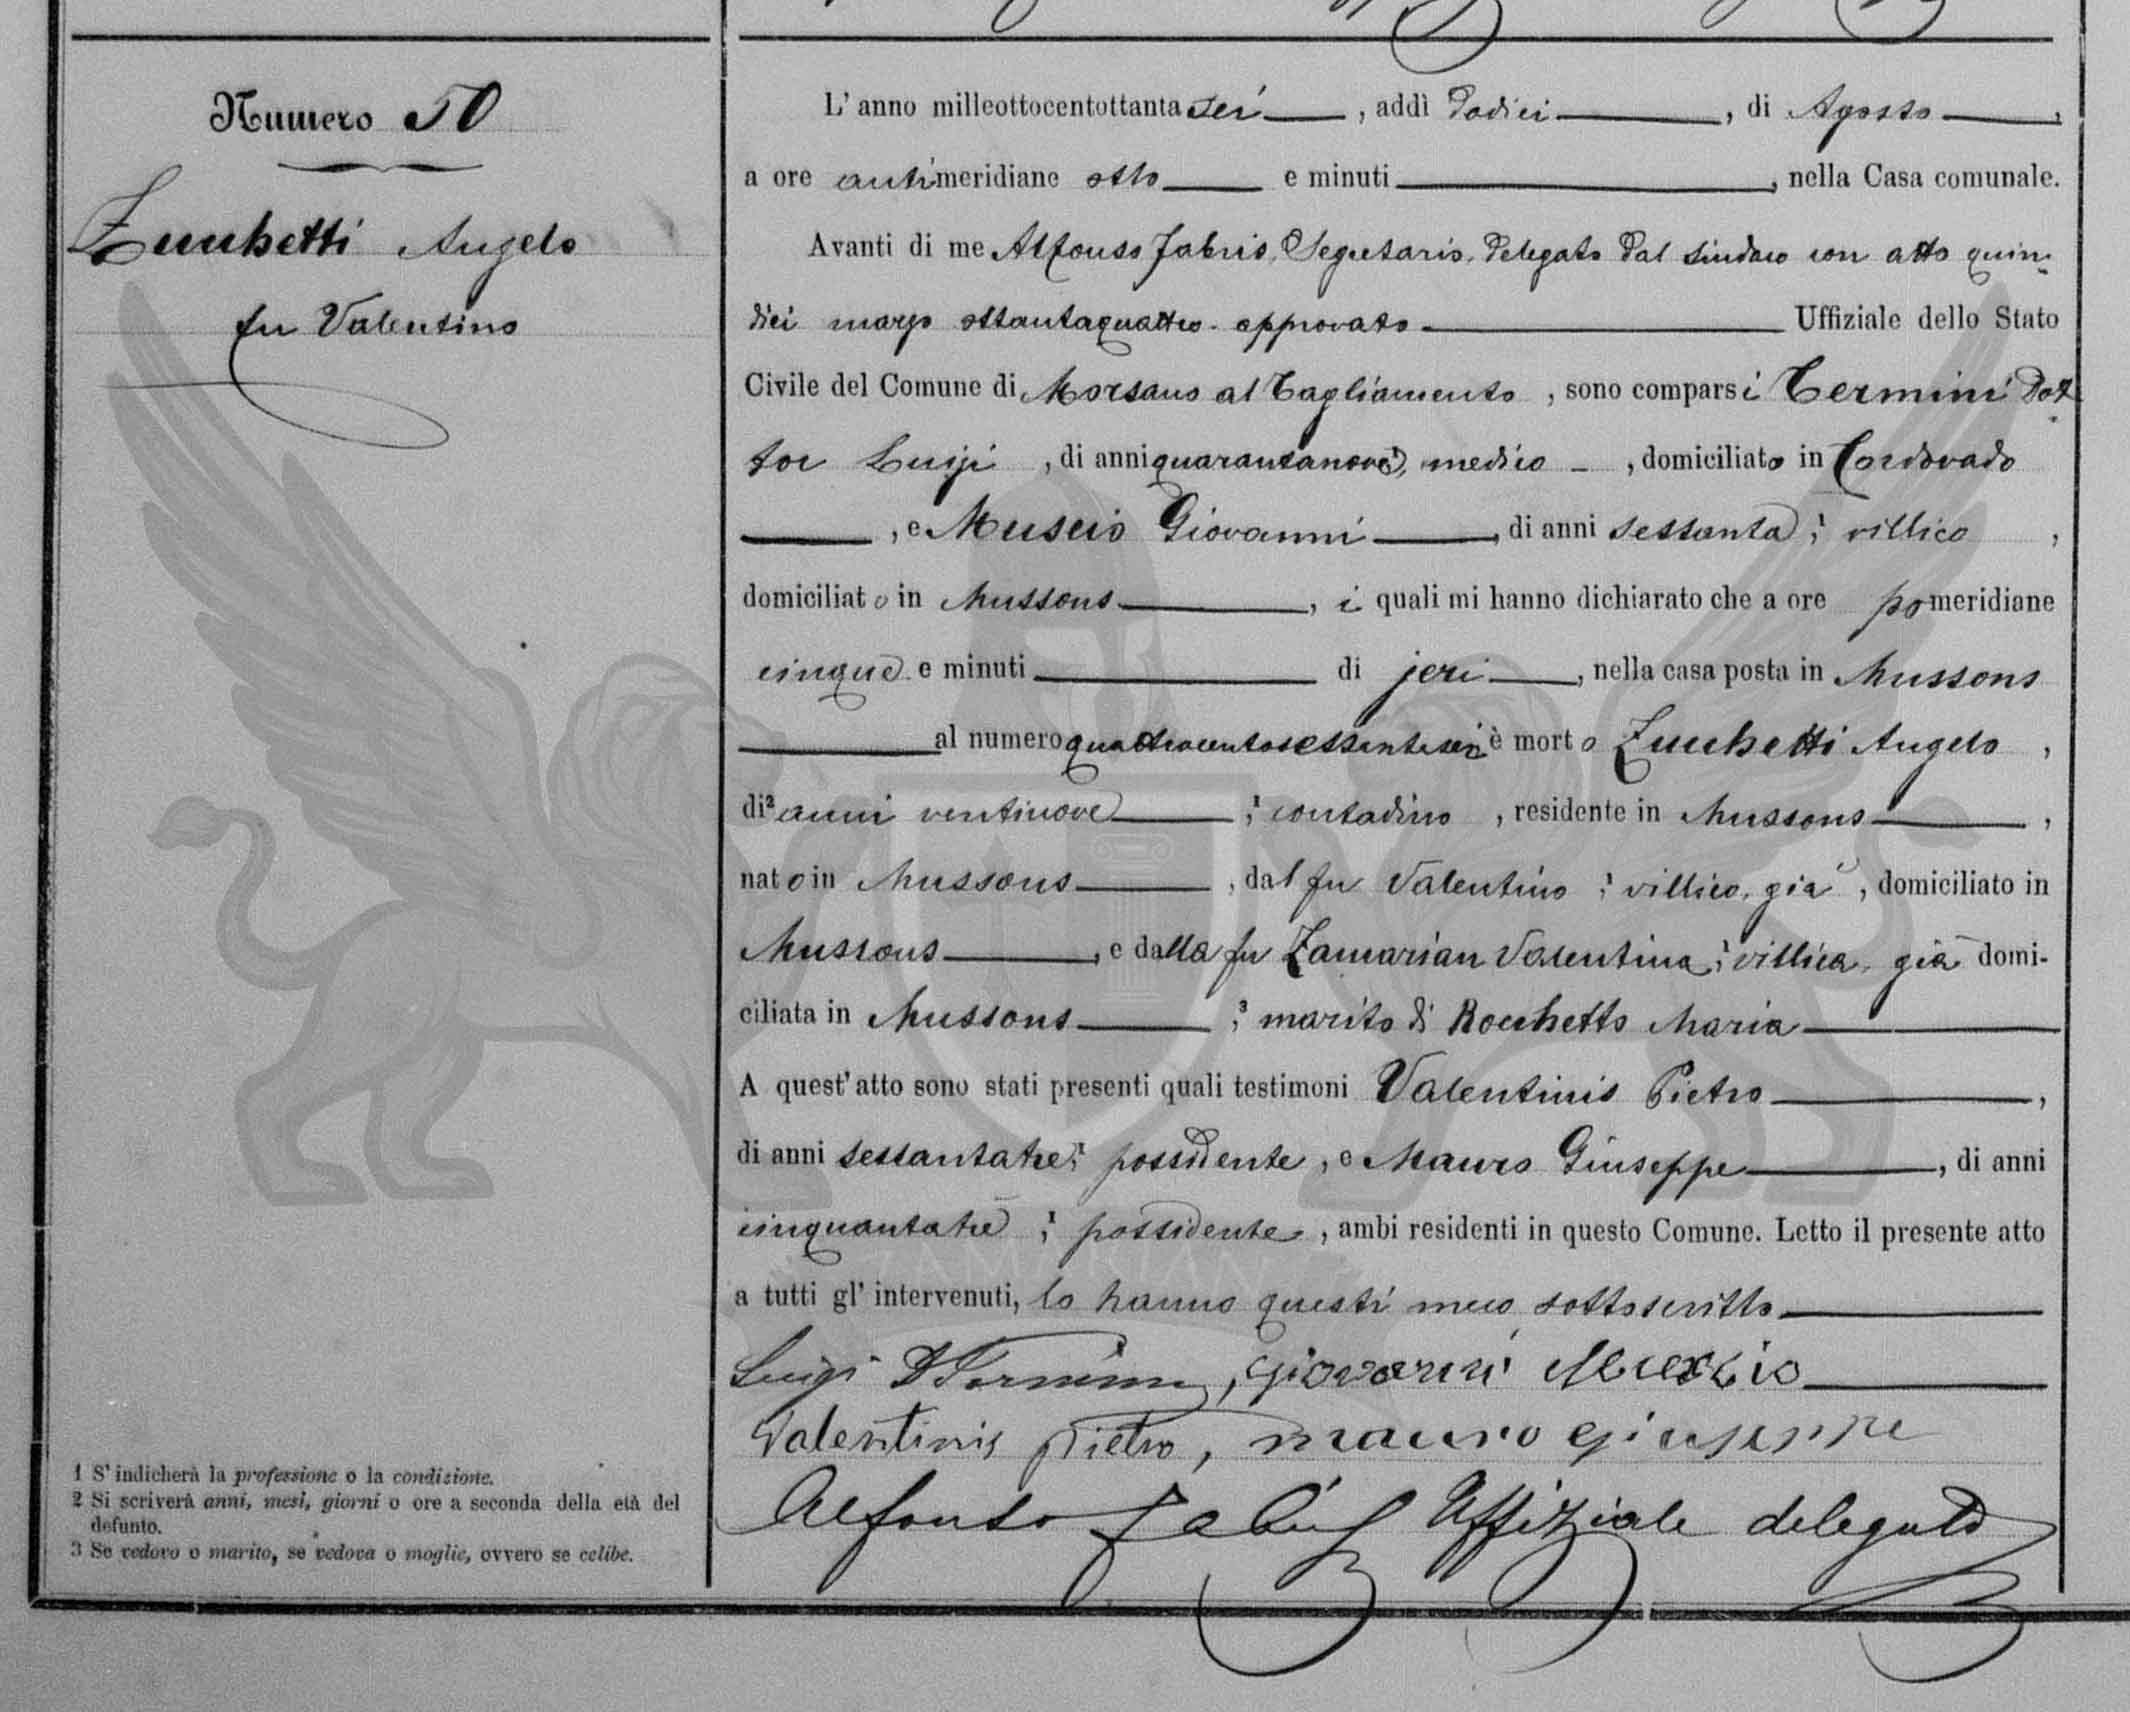 Numero 50
Zucchetti Angelo
fu Valentino
L' anno milleottocentottanta sei, addì dodici, di Agosto,
a ore antimeridiane otto e minuti, nella Casa comunale.
Avanti di me Alfonso Fabris, Segretario, delegato dal sindaco con atto quin-
dici marzo ottantaquattro approvato Uffiziale dello Stato
Civile del Comune di Morsano al Tagliamento, sono comparsi Termini Dot-
tor Luigi, di anni quarantanove, medico, domiciliato in Cordovado
, e Muscio Giovanni, di anni sessanta, villico,
domiciliato in Mussons, i quali mi hanno dichiarato che a ore pomeridiane
cinque e minuti di jeri, nella casa posta in Mussons
al numero quattrocentosessantasei è morto Zucchetti Angelo,
di² anni ventinove,¹ contadino, residente in Mussons,
nato in Mussons, dal fu Valentino,¹ villico, già, domiciliato in
Mussons, e dalla fu Zamarian Valentina,¹ villica, già domi-
ciliata in Mussons,³ marito di Rocchetto Maria
A quest' atto sono stati presenti quali testimoni Valentinis Pietro,
di anni sessantatre,¹ possidente, e Mauro Giuseppe, di anni
cinquantatre,¹ possidente, ambi residenti in questo Comune. Letto il presente atto
a tutti gl' intervenuti, lo hanno questi meco sottoscritto
Luigi Dr Termini, Giovanni
Valentinis Pietro, Mauro Giuseppe
Alfonso Fabris Uffiziale delegato
1 S' indicherà la professione o la condizione.
2 Si scriverà anni, mesi, giorni o ore a seconda della età del
defunto.
3 Se vedovo o marito, se vedova o moglie, ovvero se celibe.